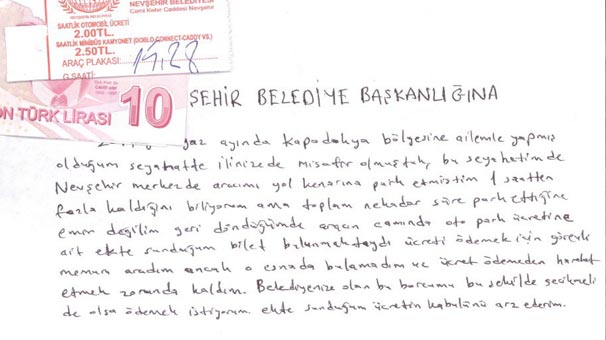 NEVŞEHİR BELEDİYESİ
Cami Kebir Caddesi Nevşehir
SAATLİK OTOMOBİL ÜCRETİ
2.00TL.
SAATLİK MİNİBÜS KAMYONET (DOBLO, CONNECT-CADDY VS.)
2.50TL.
ARAÇ PLAKASI:
G.SAATİ: 14.28
ON TÜRK LİRASI 10
ŞEHİR BELEDİYE BAŞKANLIĞINA
yaz ayında Kapadokya bölgesine ailemle yapmış
olduğum seyahatte ilinizede misafir olmuştuk, bu seyahetimde
Nevşehir merkezde aracımı yol kenarına park etmiştim 1 saatten
fazla kaldığını biliyorum ama toplam nekadar süre park ettiğine
emin değilim geri döndüğümde aracın camında oto park ücretine
ait ekte sunduğum bilet bulunmaktaydı ücreti ödemek için görevli
memuru aradım ancak o esnada bulamadım ve ücret ödemeden hareket
etmek zorunda kaldım. Belediyenize olan bu borcumu bu şekilde gecikmeli
de olsa ödemek istiyorum. ekte sunduğum ücretin kabulünü arz ederim.